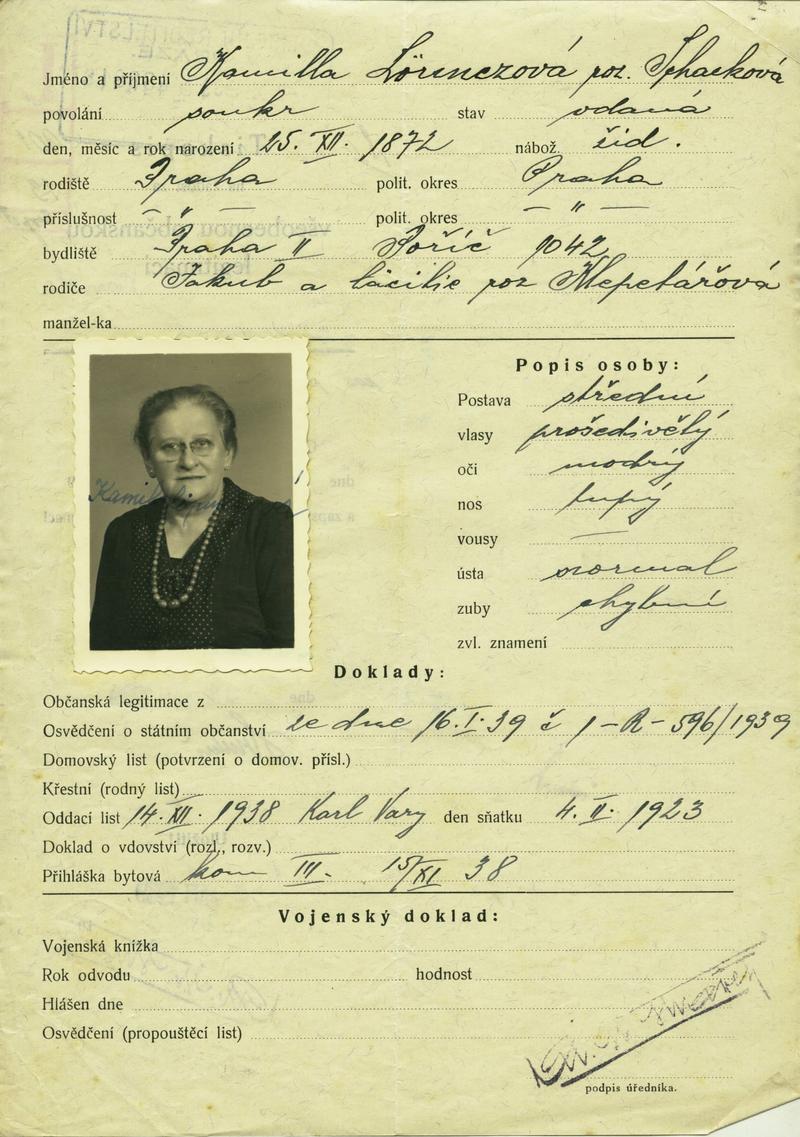 Jméno a příjmení Kamilla Lörinczová roz. Schacková
povolání soukr stav vdaná
den, měsíc a rok narození 25. XII. 1872 nábož. žid.
rodiště Praha polit. okres Praha
příslušnost — " — polit. okres — " —
bydliště Praha II Poříč 1042
rodiče Jakub a Cäcilie roz Klepetářová
manžel-ka
Popis osoby:
Postava střední
vlasy prošedivělý
oči modrý
nos tupý
vousy —
ústa normal
zuby chybné
zvl. znamení
Kamil
Doklady:
Občanská legitimace z
Osvědčení o státním občanství ze dne 16.I.39 č 1-R-596/1939
Domovský list (potvrzení o domov. přísl.)
Křestní (rodný list)
Oddací list 14. XII. 1938 Karl Vary den sňatku 4. II. 1923
Doklad o vdovství (rozl., rozv.)
Přihláška bytová kom III. 15/XI 38
Vojenský doklad:
Vojenská knížka
Rok odvodu hodnost
Hlášen dne
Osvědčení (propouštěcí list)
podpis úředníka.